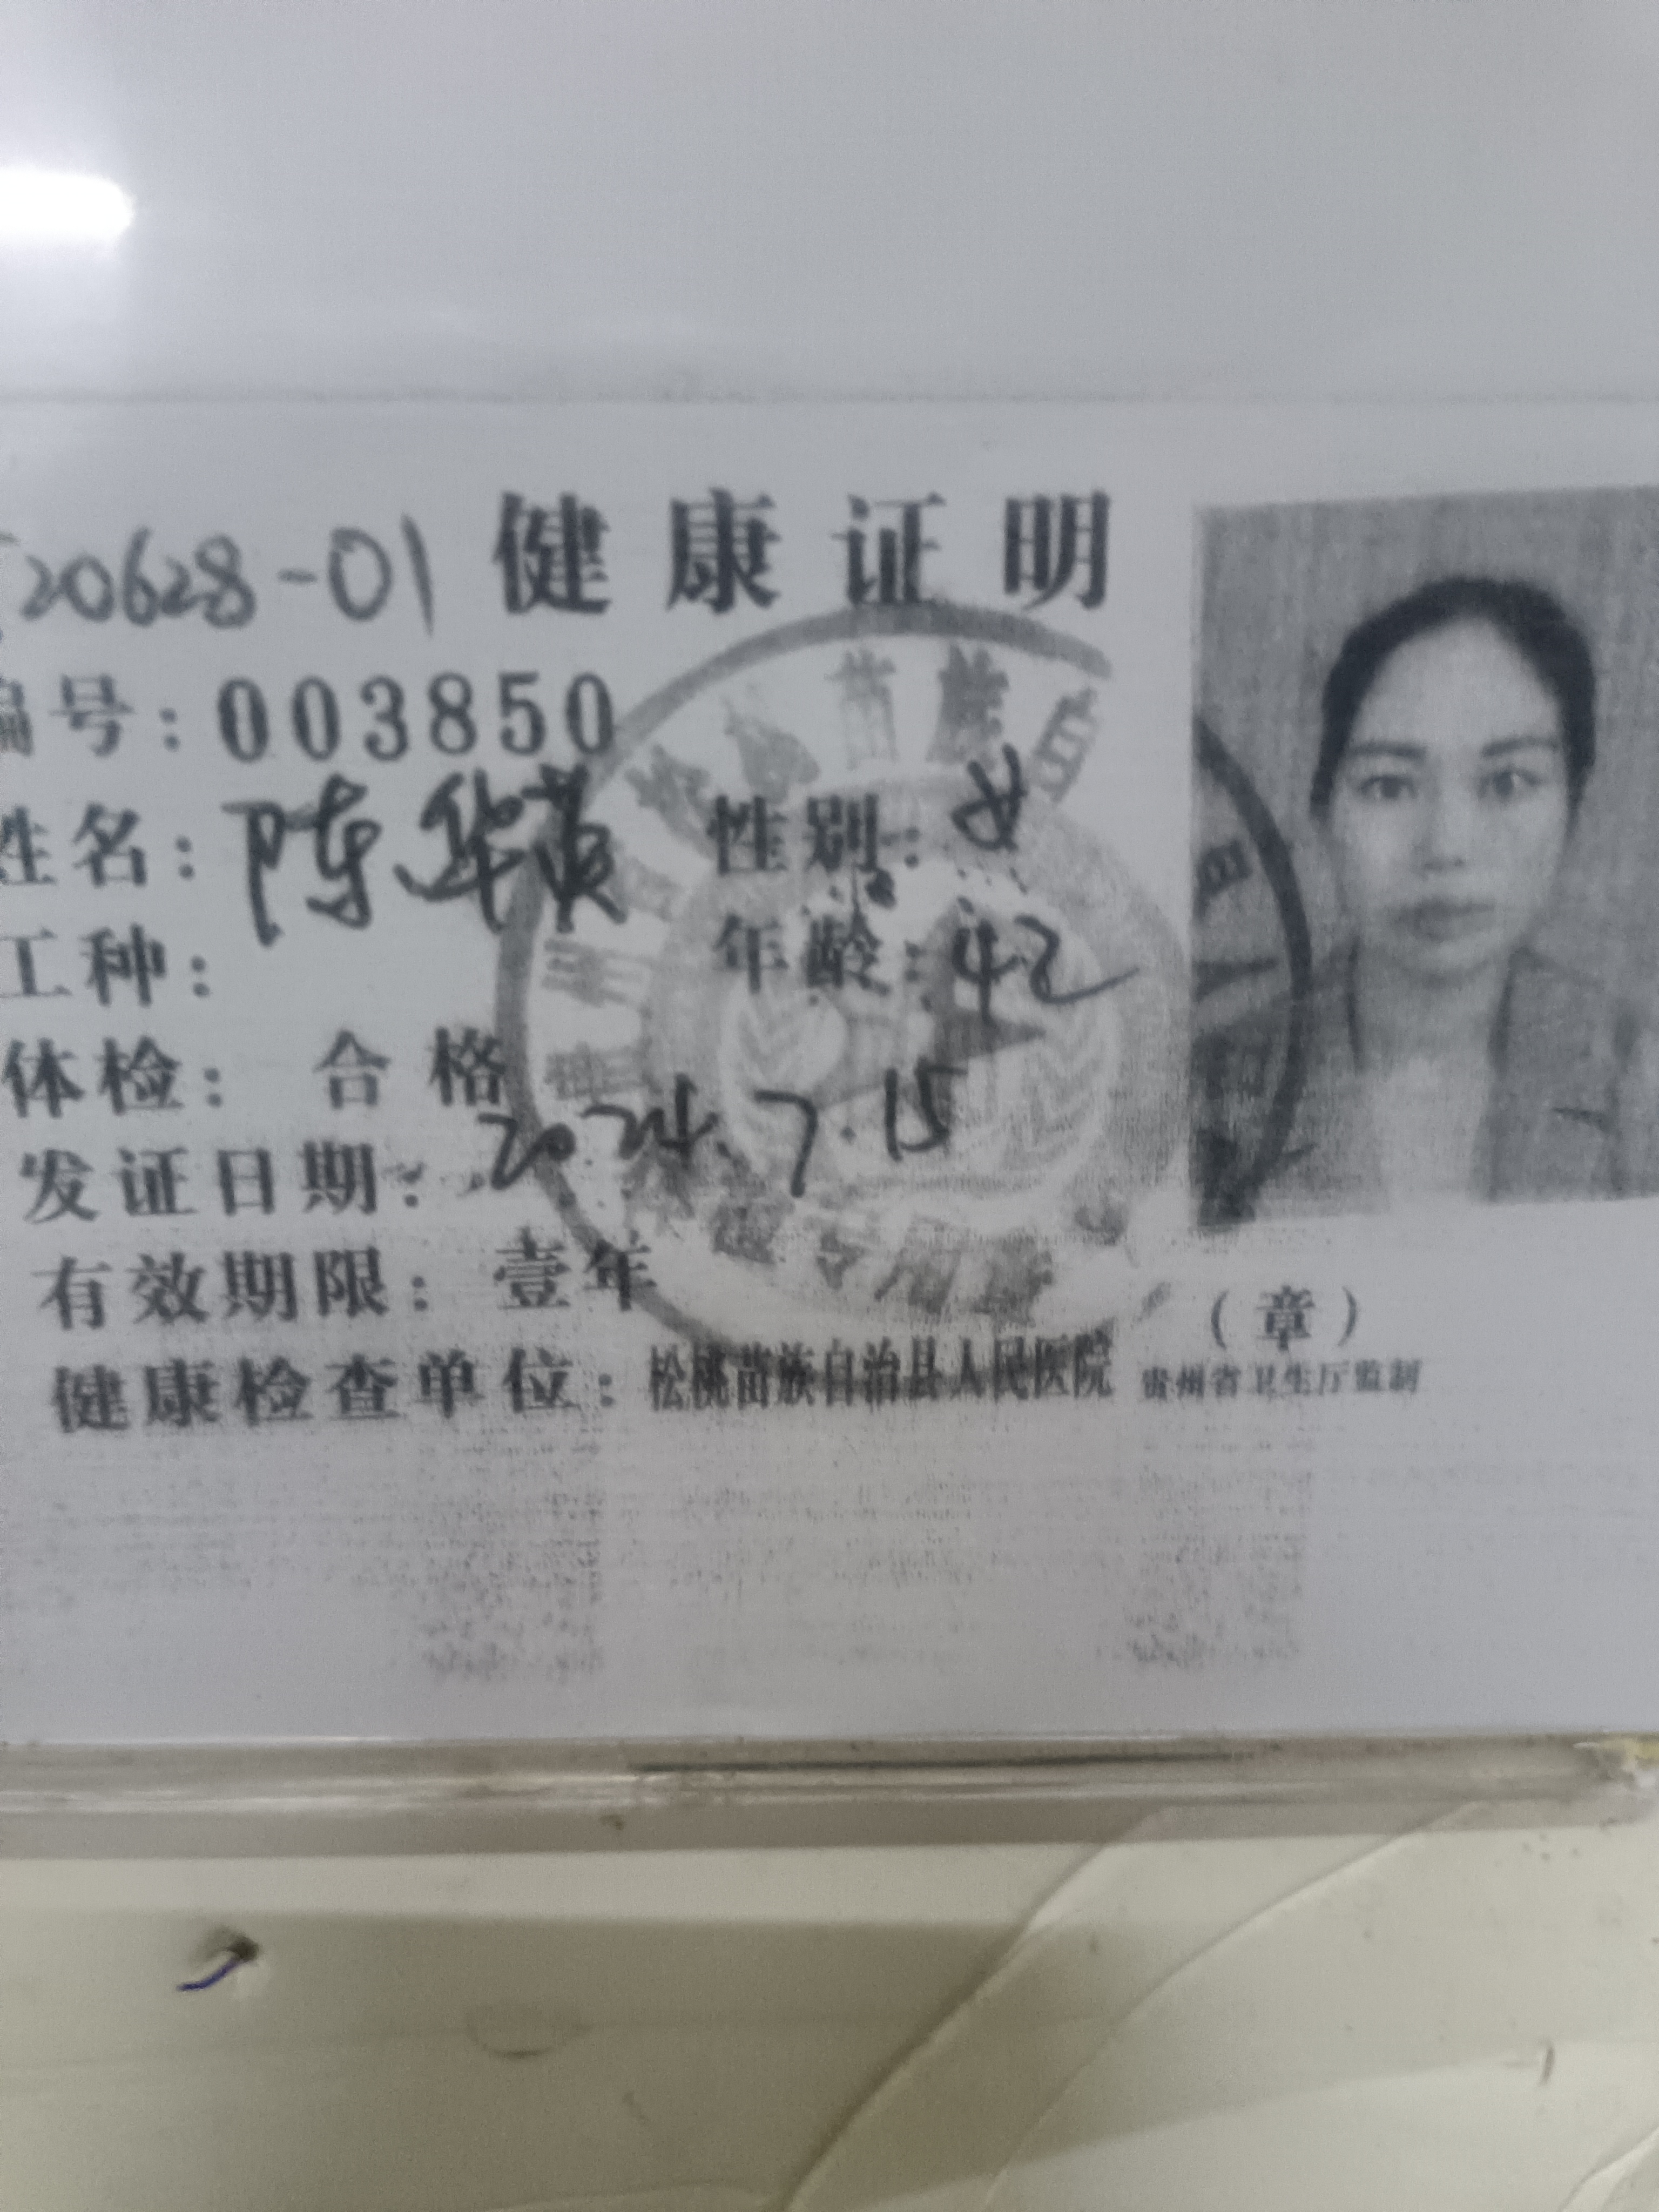 20628-01 健康证明
编号：003850
姓名：陈华 性别：女
工种： 年龄：42
体检： 合格
发证日期：2024.7.15
有效期限：壹年
（章）
健康检查单位：松桃苗族自治县人民医院 贵州省卫生厅监制
苗族自
专用章